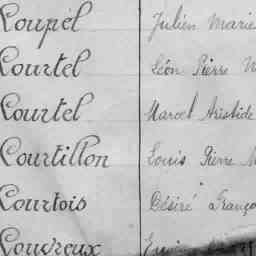 Loupél Julien Marie
Courtel Léon Pierre
Courtel Marcel Aristide
Courtillon Louis Pierre
Courtois Désiré
Couvreux